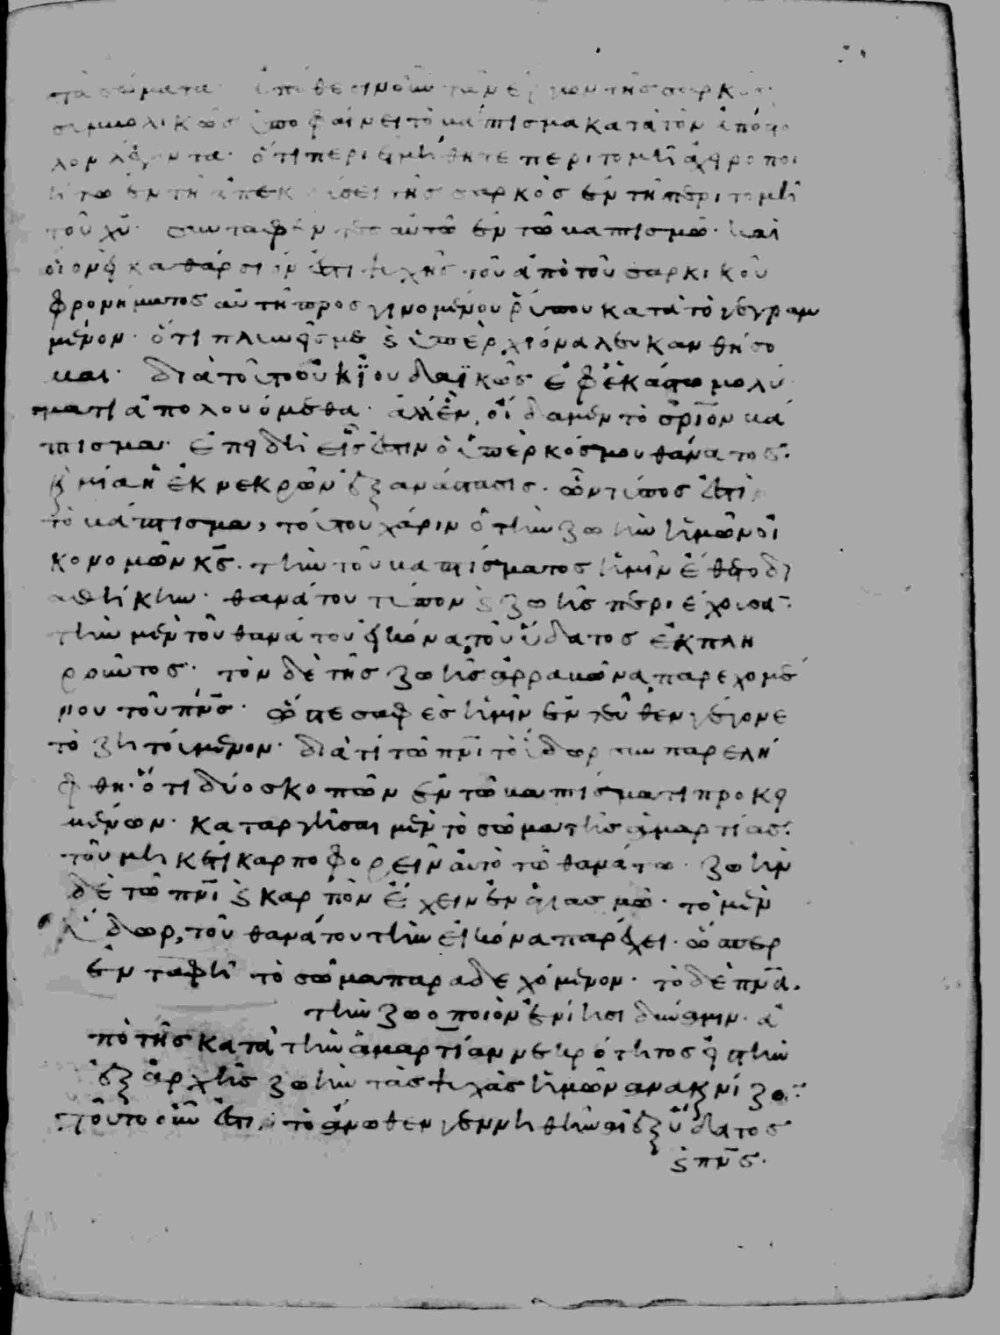 τὰ σώματα· ἀπόθεσιν οὖν τῶν ἔργων τῆς σαρκὸς
συμβολικῶς ὑποφαίνει τὸ βάπτισμα κατὰ τὸν ἀπόστο
λον λέγοντα· ὅτι περιετμήθητε περιτομῆ ἀχειροποι
ήτω ἐν τῆ ἀπεκδύσει τῆς σαρκὸς ἐν τῆ περιτομῆ
τοῦ χῦ· συνταφέντες αὐτῶ ἐν τῶ βαπτισμῶ· καὶ
οἱονεὶ καθάρσιόν ἐστι ψυχῆς τοῦ ἀπὸ τοῦ σαρκικοῦ
φρονήματος αὐτῆ προσγινομένου ῥύπου κατὰ τὸ γεγραμ
μένον· ὅτι πλυνεῖς με καὶ ὑπὲρ χιόνα λευκανθήσο
μαι· διὰ τοῦτο οὐκ ἰουδαϊκῶς ἐφ' ἑκάστω μολύ
σματι ἀπολουόμεθα· ἀλλ' ἓν οἴδαμεν τὸ σριον βά
πτισμα· ἐπειδὴ εἷς ἐστιν ὁ ὑπὲρ κόσμου θάνατος·
καὶ μία ἡ ἐκ νεκρῶν ἐξανάστασις· ὧν τύπος ἐστὶ
τὸ βάπτισμα, τούτου χάριν ὁ τὴν ζωὴν ἡμῶν οἰ
κονομῶν κς· τὴν τοῦ βαπτίσματος ἡμῖν ἔθετο δι
αθήκην· θανάτου τύπον καὶ ζωῆς περιέχουσαν
τὴν μὲν τοῦ θανάτου εἰκόνα τοῦ ὕδατος ἐκπλη
ροῦντος· τὸν δὲ τῆς ζωῆς ἀρραβῶνα παρεχομέ
νου τοῦ πνς· ὥστε σαφὲς ἡμῖν ἐντεῦθεν γέγονε
τὸ ζητούμενον· διατί τῶ πνι τὸ ὕδωρ συμπαρελή
φθη· ὅτι δύο σκοπῶν ἐν τῶ βαπτίσματι προκει
μένων· καταργῆσαι μὲν τὸ σῶμα τῆς ἁμαρτίας·
τοῦ μηκέτι καρποφορεῖν αὐτὸ τῶ θανάτω· ζωὴν
δὲ τῶ πνι καὶ καρπὸν ἔχειν ἐν ἁγιασμῶ· τὸ μὲν
ὕδωρ, τοῦ θανάτου τὴν εἰκόνα παρέχει· ὥσπερ
ἐν ταφῆ τὸ σῶμα παραδεχόμενον· τὸ δὲ πνα·
τὴν ζωοποιὸν ἐνίησι δύναμιν· ἀ
πὸ τῆς κατὰ τὴν ἁμαρτίαν νεκρότητος εἰς τὴν
ἐξ ἀρχῆς ζωὴν τὰς ψυχὰς ἡμῶν ἀνακαινίζον·
τοῦτο οὖν ἐστι τὸ ἄνωθεν γεννηθῆναι ἐξ ὕδατος
καὶ πνς·